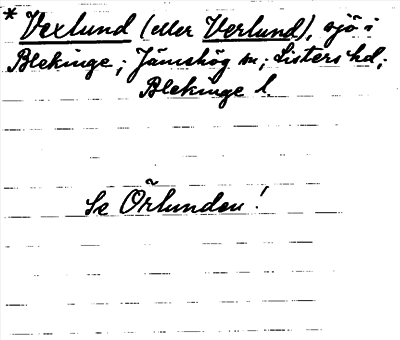 * Vexlund (eller Verlund), sjö i
Blekinge; Jämshög sn; Listers hd;
Blekinge l.
Se Örlunden!